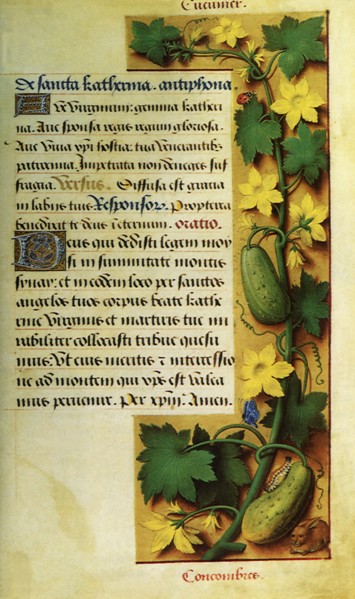 Cucumer.
De sancta katherina. antiphona.
Ave Virginum gemma katheri
na. Ave sponsa regis regum gloriosa.
Ave viva xpi hostia: tua venerantibus
patrocinia. Impetrata non deneges suf
fragia. Versus. Diffusa est gracia
in labiis tuis Responsor. Propterea
benedixit te deus in eternum. oratio.
Deus qui dedisti legem moy
si in summitate montis
synay: et in eodem loco per sanctos
angelos tuos corpus beate kathe
rine Virginis et martiris tue mi
rabiliter collocasti tribue quesu
mus. Ut eius meritis et intercessio
ne ad montem qui xps est valea
mus pervenire. Per xpm. Amen.
Concombres.